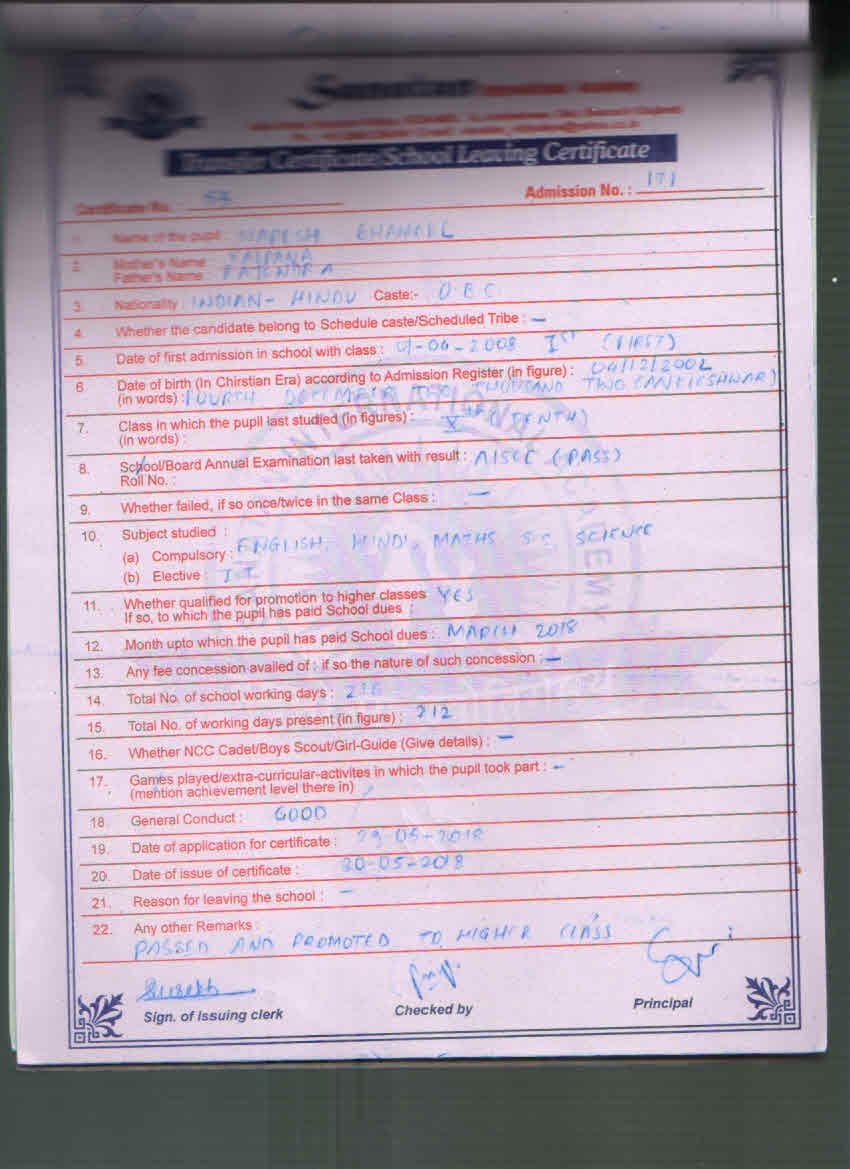 Sanatan
Transfer Certificate/School Leaving Certificate
Certificate No. : 53 Admission No. : 171
1. Name of the pupil :
2. Mother's Name KALPANA
Father's Name
3. Nationality : INDIAN - HINDU Caste:- O.B.C.
4. Whether the candidate belong to Schedule caste/Scheduled Tribe : –
5. Date of first admission in school with class : 01-04-2008 Ist (FIRST)
6 Date of birth (In Chirstian Era) according to Admission Register (in figure) : 04/12/2002
(in words) : FOURTH DECEMBER TWO THOUSAND TWO (ANKLESHWAR)
7. Class in which the pupil last studied (in figures) : Xth (TENTH)
(in words) :
8. School/Board Annual Examination last taken with result : AISCE (PASS)
Roll No. :
9. Whether failed, if so once/twice in the same Class : –
10. Subject studied :
(a) Compulsory : ENGLISH, HINDI, MATHS S.S, SCIENCE
(b) Elective : I.T
11. Whether qualified for promotion to higher classes YES
If so, to which the pupil has paid School dues :
12. Month upto which the pupil has paid School dues : MARCH 2018
13. Any fee concession availed of : if so the nature of such concession : –
14. Total No. of school working days : 216
15. Total No. of working days present (in figure) : 212
16. Whether NCC Cadet/Boys Scout/Girl-Guide (Give details) : –
17. Games played/extra-curricular-activites in which the pupil took part : –
(mention achievement level there in)
18. General Conduct : GOOD
19. Date of application for certificate : 29-05-2018
20. Date of issue of certificate : 30-05-2018
21. Reason for leaving the school : –
22. Any other Remarks :
PASSED AND PROMOTED TO HIGHER CLASS
Sign. of Issuing clerk Checked by Principal